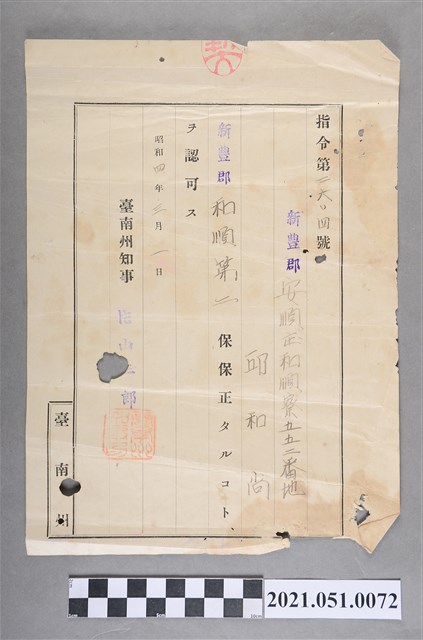 指令第二六〇四號
新豊郡安順庄和順寮五五二番地
邱和尚
新豊郡和順第一保保正タルコト
ヲ認可ス
昭和四年三月一日
臺南州知事 片山三郎
臺南州
2021.051.0072